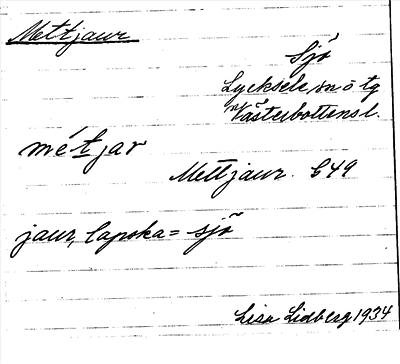 Mettjaur
Sjö
Lycksele, sn o tg
Västerbottens l.
mét jar
Mettjaur. 649
jaur, lapska = sjö
Lisa Lidberg 1934